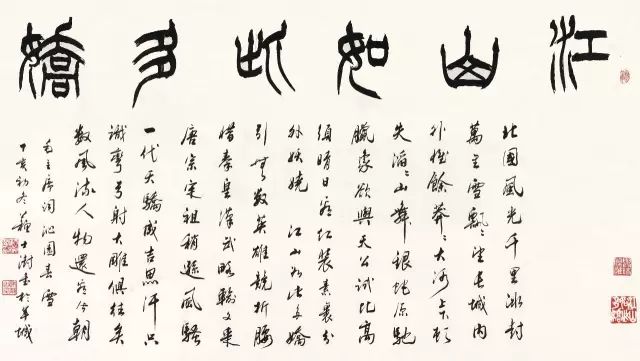 江山如此多嬌
北國風光千里冰封
萬里雪飄〻望長城內
外惟餘莽〻大河上下頓
失滔〻山舞銀蛇原馳
臘象欲與天公試比高
須晴日看紅裝素裹分
外妖嬈 江山如此多嬌
引無數英雄競折腰
惜秦皇漢武略輸文采
唐宗宋祖稍遜風騷
一代天驕成吉思汗只
識彎弓射大雕俱往矣
數風流人物還看今朝
毛主席詞沁園春雪
丁亥初冬蘇士澍書於羊城